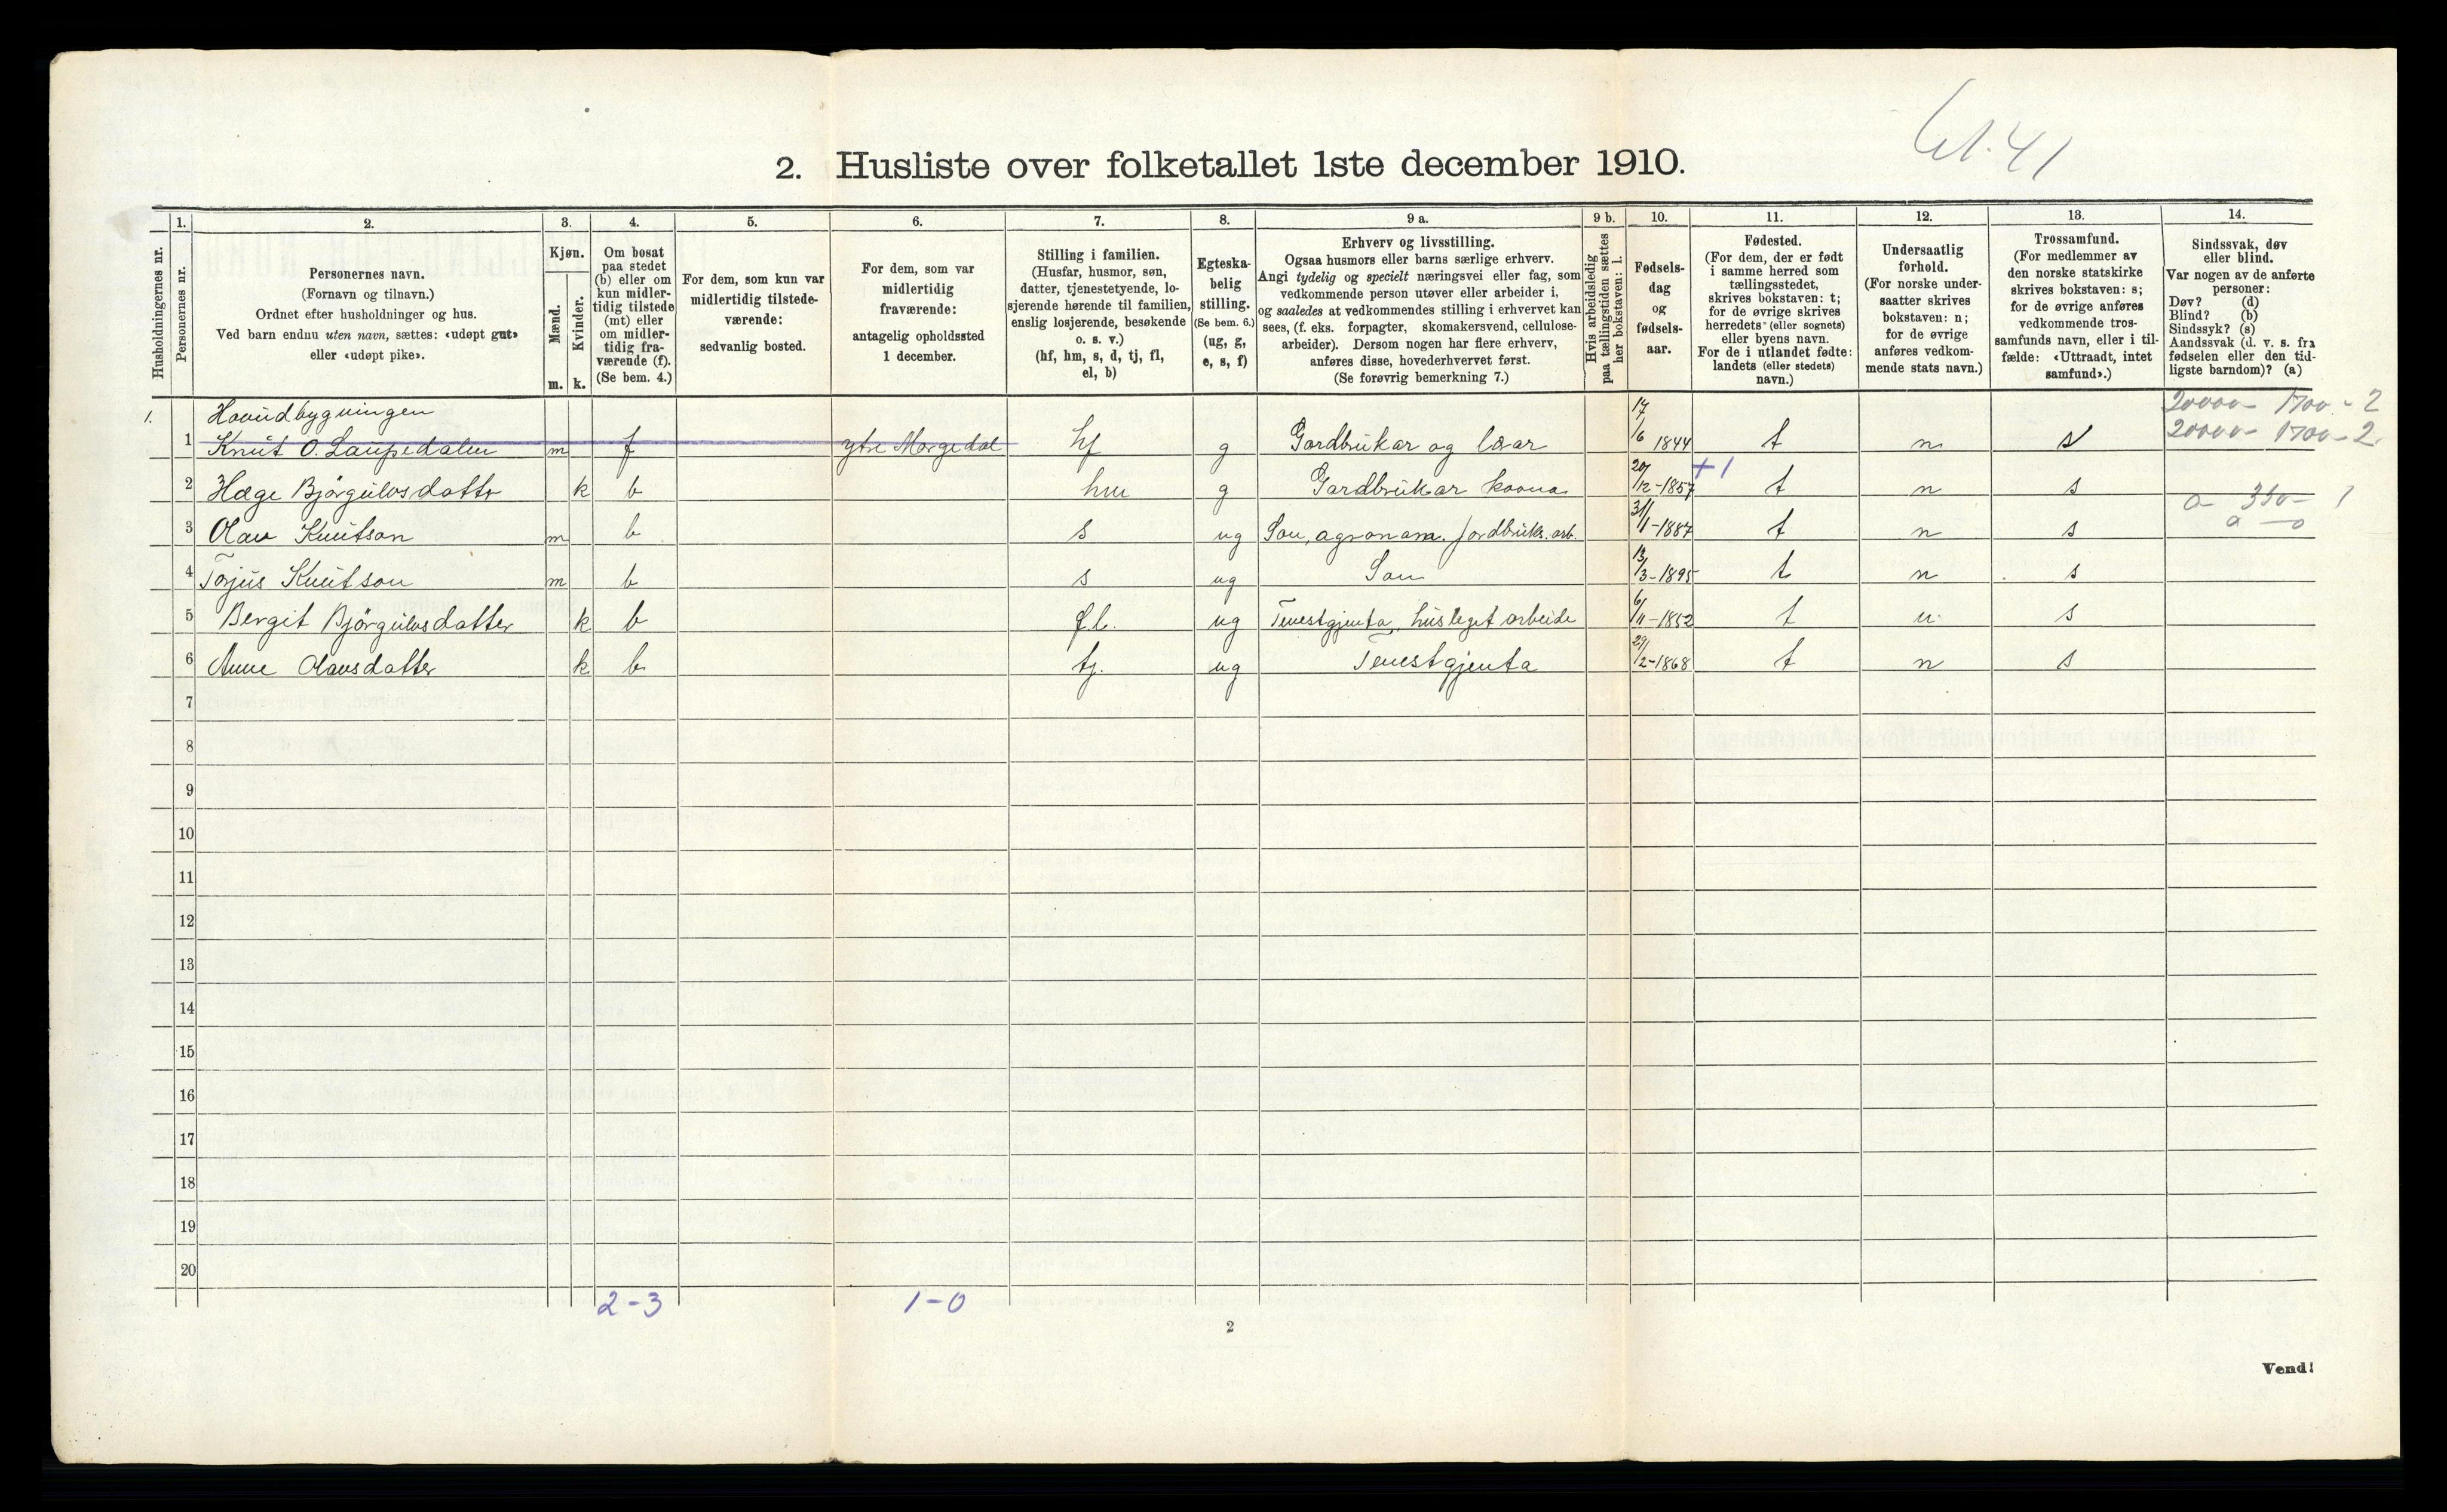 61.41
2. Husliste over folketallet 1ste december 1910.
Husholdningernes nr.
1. Personernes nr.
2. Personernes navn.
(Fornavn og tilnavn.)
Ordnet efter husholdninger og hus.
Ved barn endnu uten navn, sættes: «udøpt gut»
eller «udøpt pike».
3. Kjøn.
Mænd. Kvinder.
m. k.
4. Om bosat
paa stedet
(b) eller om
kun midler-
tidig tilstede
(mt) eller
om midler-
tidig fra-
værende (f).
(Se bem. 4.)
5. For dem, som kun var
midlertidig tilstede-
værende:
sedvanlig bosted.
6. For dem, som var
midlertidig
fraværende:
antagelig opholdssted
1 december.
7. Stilling i familien.
(Husfar, husmor, søn,
datter, tjenestetyende, lo-
sjerende hørende til familien,
enslig losjerende, besøkende
o. s. v.)
(hf, hm, s, d, tj, fl,
el, b)
8. Egteska-
belig
stilling.
(Se bem. 6.)
(ug, g,
e, s, f)
9 a. Erhverv og livsstilling.
Ogsaa husmors eller barns særlige erhverv.
Angi tydelig og specielt næringsvei eller fag, som
vedkommende person utøver eller arbeider i,
og saaledes at vedkommendes stilling i erhvervet kan
sees, (f. eks. forpagter, skomakersvend, cellulose-
arbeider). Dersom nogen har flere erhverv,
anføres disse, hovederhvervet først.
(Se forøvrig bemerkning 7.)
9 b. Hvis arbeidsledig
paa tællingstiden sættes
her bokstaven: l.
10. Fødsels-
dag
og
fødsels-
aar.
11. Fødested.
(For dem, der er født
i samme herred som
tællingsstedet,
skrives bokstaven: t;
for de øvrige skrives
herredets (eller sognets)
eller byens navn.
For de i utlandet fødte:
landets (eller stedets)
navn.)
12. Undersaatlig
forhold.
(For norske under-
saatter skrives
bokstaven: n;
for de øvrige
anføres vedkom-
mende stats navn.)
13. Trossamfund.
(For medlemmer av
den norske statskirke
skrives bokstaven: s;
for de øvrige anføres
vedkommende tros-
samfunds navn, eller i til-
fælde: «Uttraadt, intet
samfund».)
14. Sindssvak, døv
eller blind.
Var nogen av de anførte
personer:
Døv? (d)
Blind? (b)
Sindssyk? (s)
Aandssvak (d. v. s. fra
fødselen eller den tid-
ligste barndom)? (a)
1. Hovudbygningen 20000- 1700 - 2
1 Knut O. Laupedalen m f ytre Morgedal hf g Gardbrukar og lærar 17/6 1844 t n s 20000- 1700 - 2.
2 Hæge Bjørgulvsdatte k b hm g Gardbrukar koona 20/12-1857 +1 t n s
a- 350- 1
3 Olav Knutson m b s ug Son, agronom. jordbruks. arb. 31/1-1887 t n s a - o
4 Torjus Knutson m b s ug Son 13/3-1895 t n s
5 Bergit Bjørgulvsdatter k b f.l. ug Tenestgjenta, husleget arbeide 6/11-1852 t n s
6 Anne Olavsdatter k b tj. ug Tenestgjenta 29/2-1868 t n s
7
8
9
10
11
12
13
14
15
16
17
18
19
20
2-3 1-0
2
Vend!